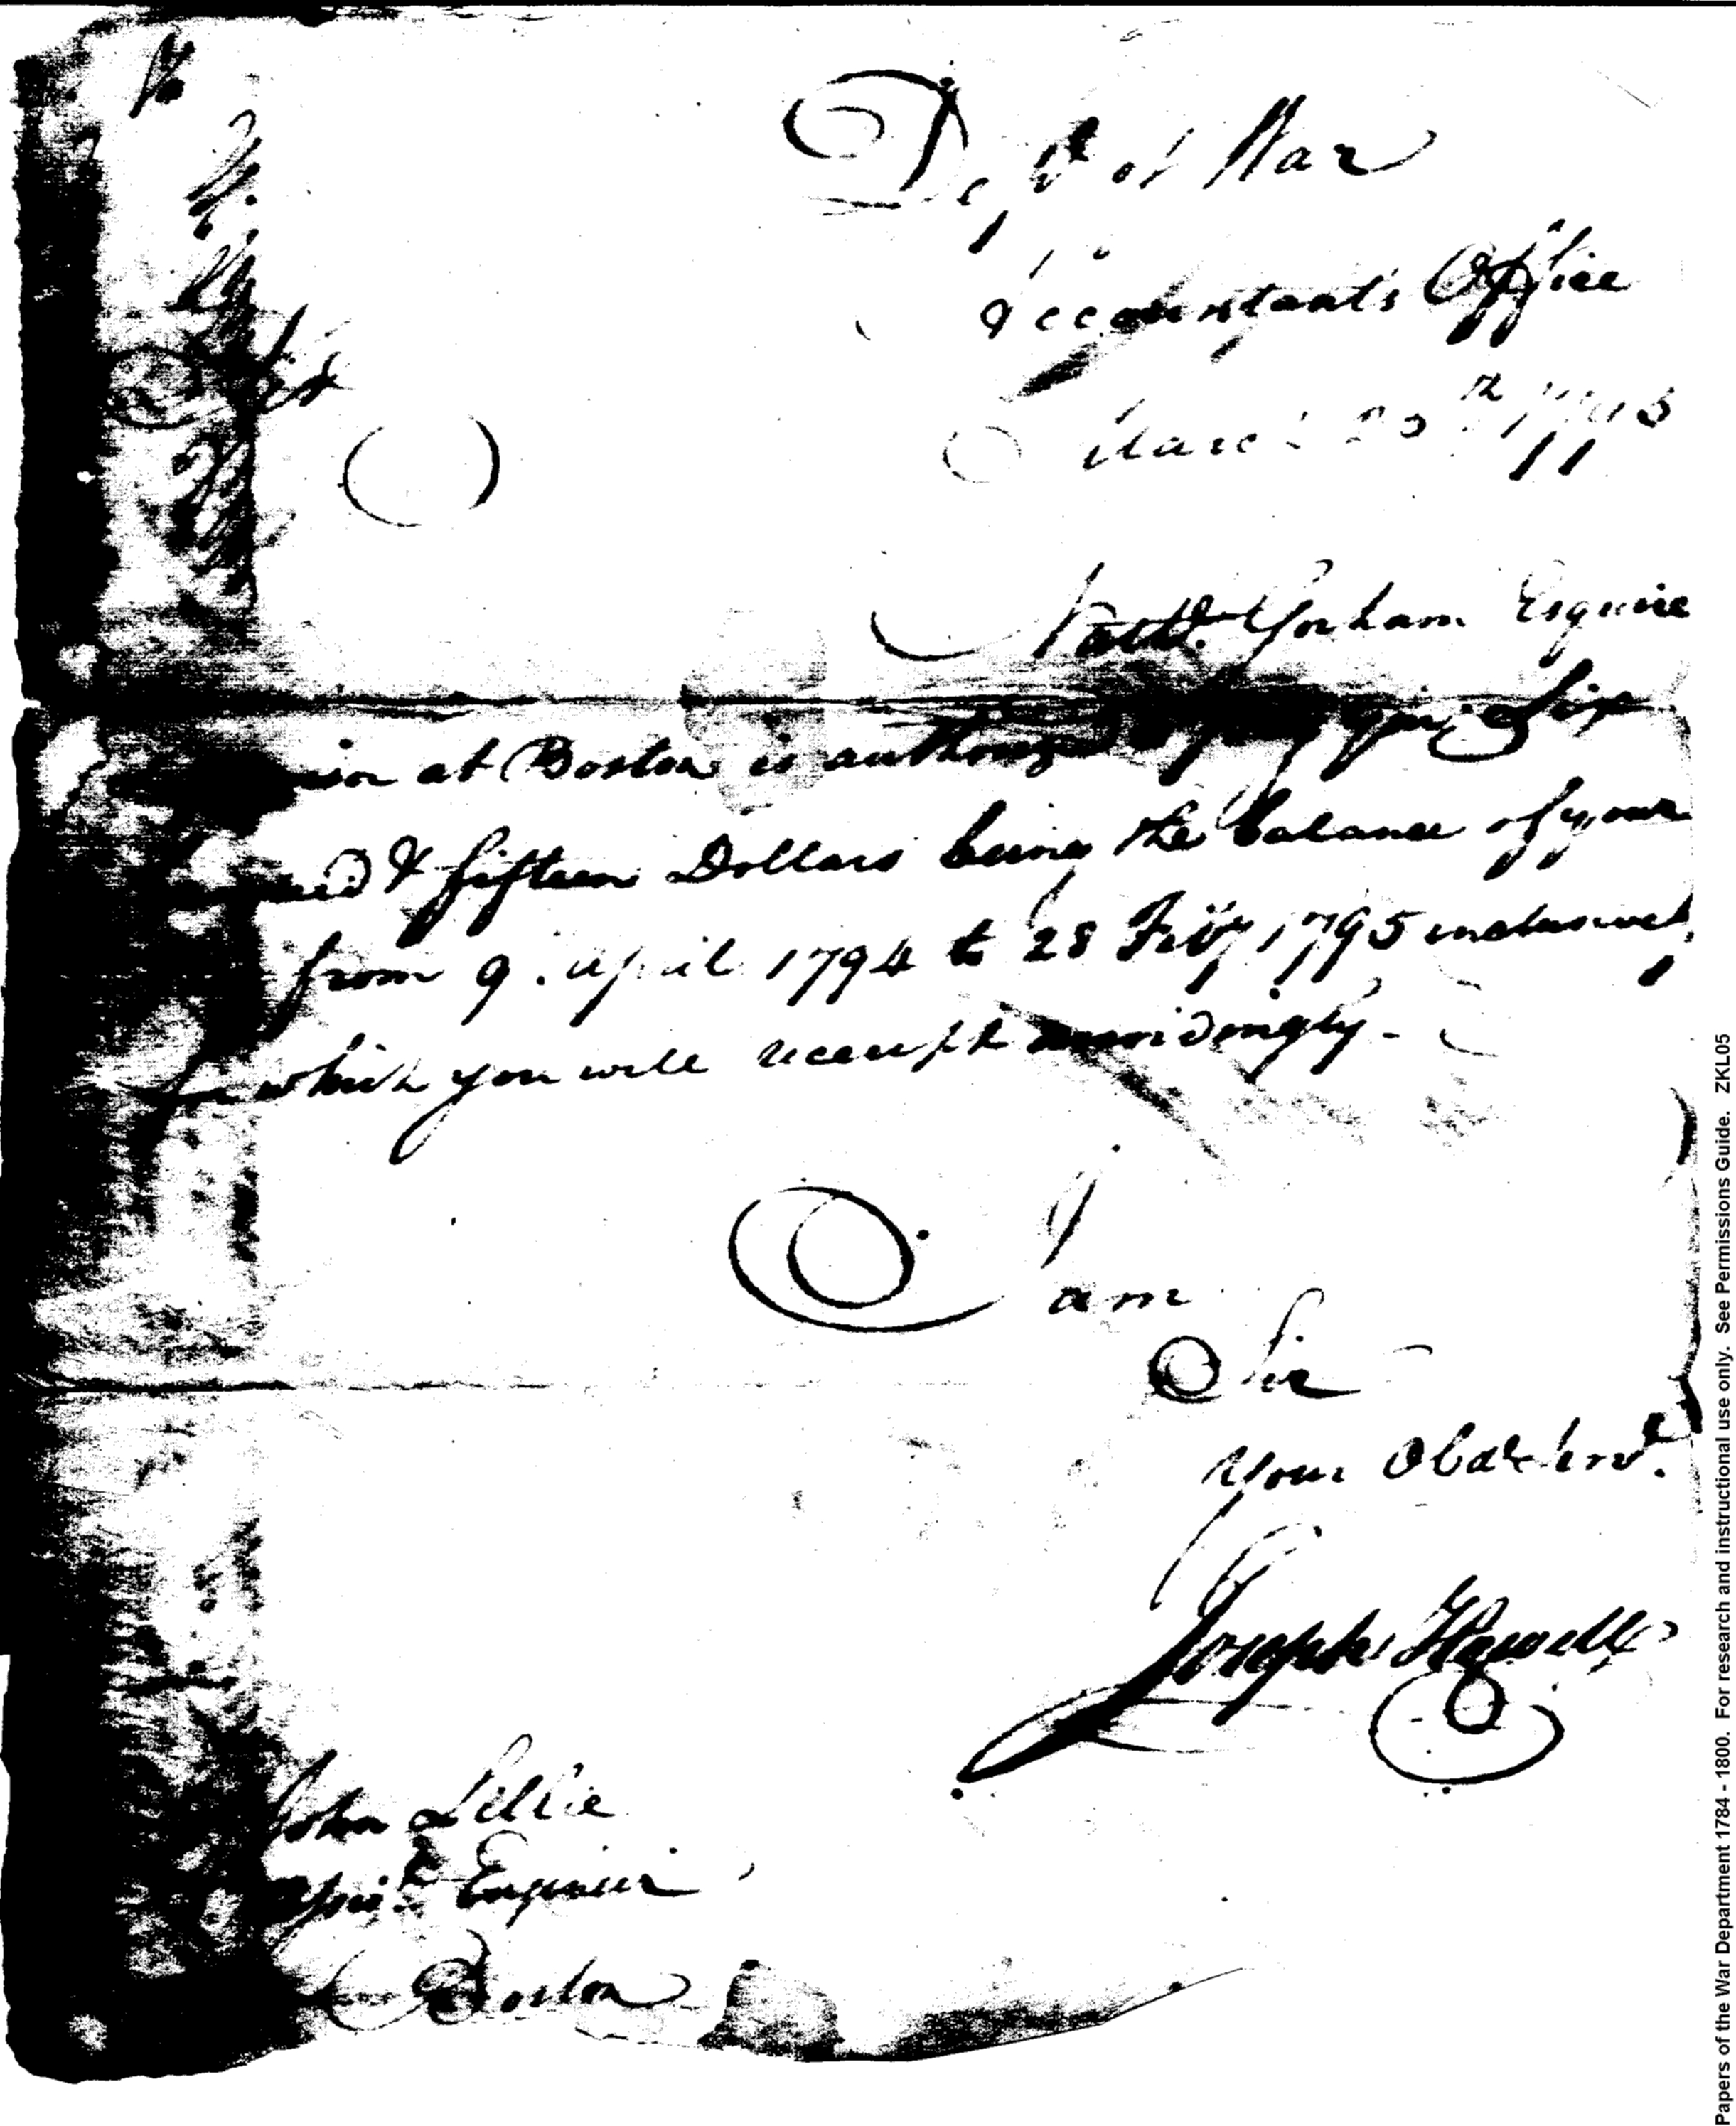 Dept of War
Accountants Office
March 20th 1795
Nathl. Gorham Esquire
at Boston is authorized to pay you Six
& fifteen Dollars being the balance of your
from 9. April 1794 to 28 Feby 1795 inclusive,
for which you will receipt accordingly.
I
am
Sir
Your Obdt Servt.
Joseph Howell
John Lillie
Engineer
Boston
Papers of the War Department 1784 - 1800. For research and instructional use only. See Permissions Guide. ZKL05